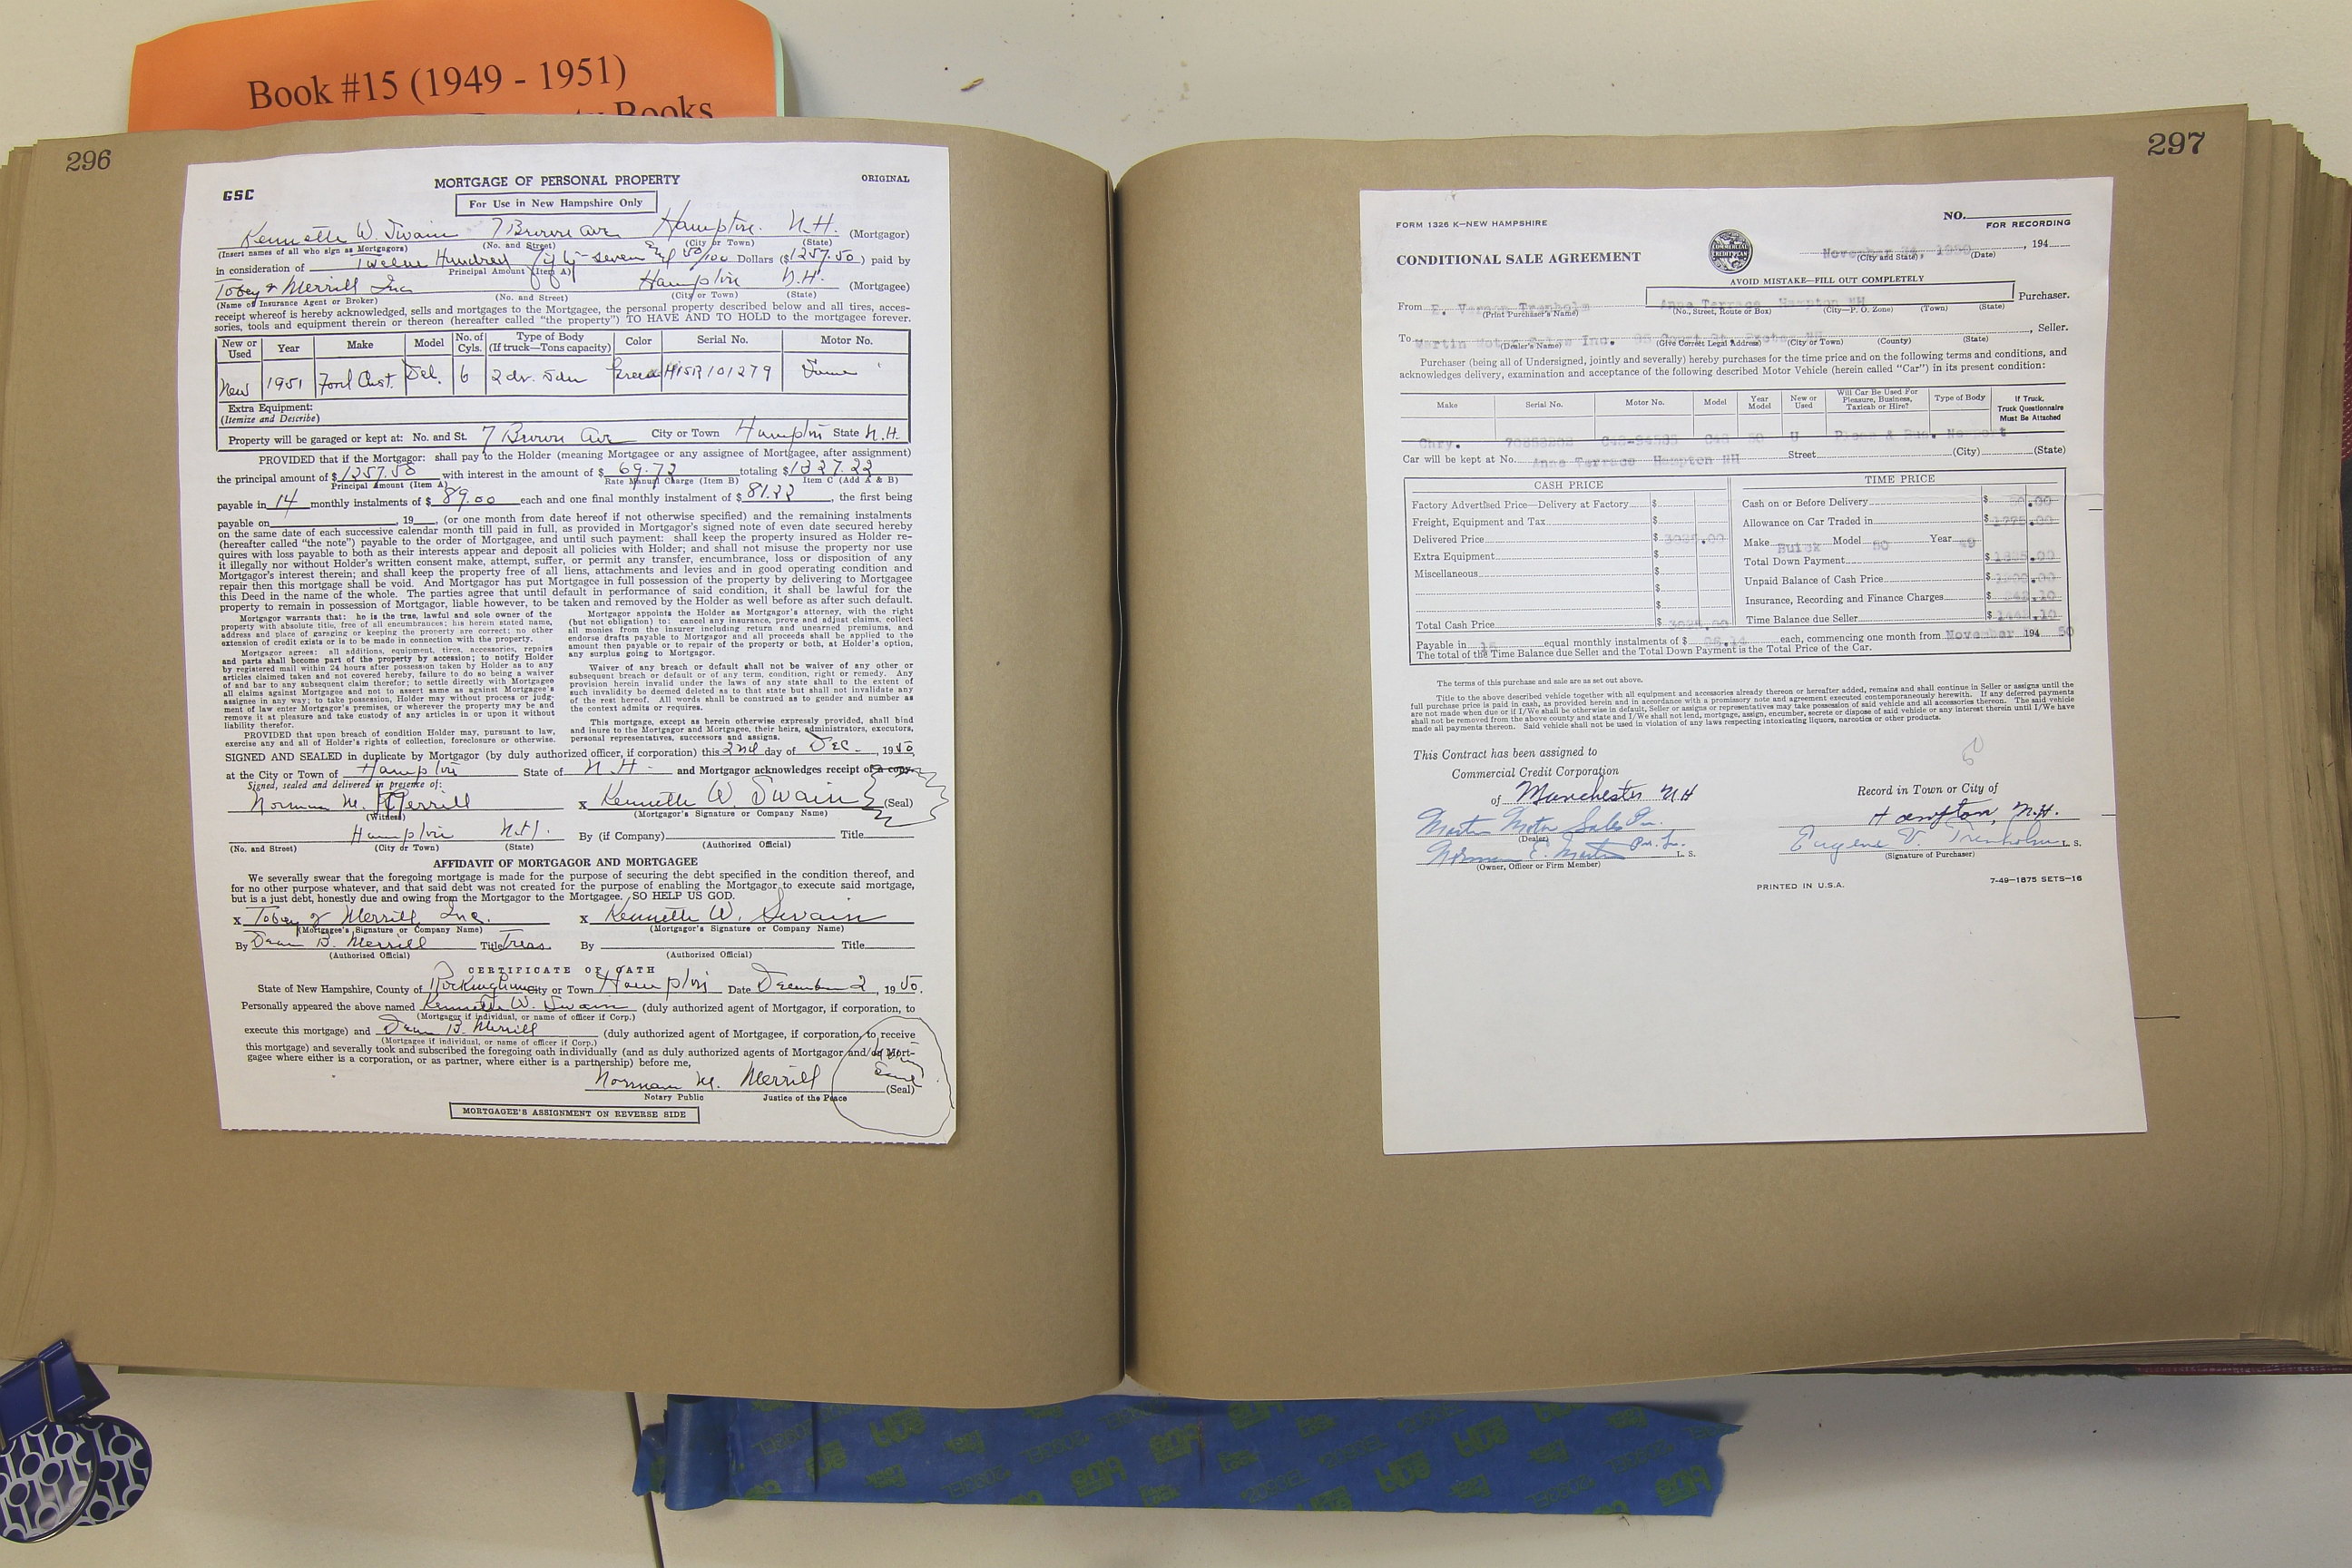 Book #15 (1949 - 1951)
Books
296
GSC
MORTGAGE OF PERSONAL PROPERTY
ORIGINAL
For Use in New Hampshire Only
Kenneth W. Swain 7 Brown Ave Hampton N.H. (Mortgagor)
(Insert names of all who sign as Mortgagors) (No. and Street) (City or Town) (State)
in consideration of Twelve Hundred Fifty-seven & 50/100 Dollars ($1257.50) paid by
Principal Amount (Item A)
Tobey & Merrill Inc Hampton N.H. (Mortgagee)
(Name of Insurance Agent or Broker) (No. and Street) (City or Town) (State)
receipt whereof is hereby acknowledged, sells and mortgages to the Mortgagee, the personal property described below and all tires, acces-
sories, tools and equipment therein or thereon (hereafter called "the property") TO HAVE AND TO HOLD to the mortgagee forever.
New or Used Year Make Model No. of Cyls. Type of Body (If truck—Tons capacity) Color Serial No. Motor No.
New 1951 Ford Cust. Del. 6 2 dr. Sdn Green H1SR101279 Same
Extra Equipment:
(Itemize and Describe)
Property will be garaged or kept at: No. and St. 7 Brown Ave City or Town Hampton State N.H.
PROVIDED that if the Mortgagor: shall pay to the Holder (meaning Mortgagee or any assignee of Mortgagee, after assignment)
the principal amount of $1257.50 with interest in the amount of $69.72 totaling $1327.22
Principal Amount (Item A) Rate Manual Charge (Item B) Item C (Add A & B)
payable in 14 monthly instalments of $89.00 each and one final monthly instalment of $81.22, the first being
payable on , 19 , (or one month from date hereof if not otherwise specified) and the remaining instalments
on the same date of each successive calendar month till paid in full, as provided in Mortgagor's signed note of even date secured hereby
(hereafter called "the note") payable to the order of Mortgagee, and until such payment: shall keep the property insured as Holder re-
quires with loss payable to both as their interests appear and deposit all policies with Holder; and shall not misuse the property nor use
it illegally nor without Holder's written consent make, attempt, suffer, or permit any transfer, encumbrance, loss or disposition of any
Mortgagor's interest therein; and shall keep the property free of all liens, attachments and levies and in good operating condition and
repair then this mortgage shall be void. And Mortgagor has put Mortgagee in full possession of the property by delivering to Mortgagee
this Deed in the name of the whole. The parties agree that until default in performance of said condition, it shall be lawful for the
property to remain in possession of Mortgagor, liable however, to be taken and removed by the Holder as well before as after such default.
Mortgagor warrants that: he is the true, lawful and sole owner of the
property with absolute title, free of all encumbrances; his herein stated name,
address and place of garaging or keeping the property are correct; no other
extension of credit exists or is to be made in connection with the property.
Mortgagor agrees: all additions, equipment, tires, accessories, repairs
and parts shall become part of the property by accession; to notify Holder
by registered mail within 24 hours after possession taken by Holder as to any
articles claimed taken and not covered hereby, failure to do so being a waiver
of and bar to any subsequent claim therefor; to settle directly with Mortgagee
all claims against Mortgagee and not to assert same as against Mortgagee's
assignee in any way; to take possession, Holder may without process or judg-
ment of law enter Mortgagor's premises, or wherever the property may be and
remove it at pleasure and take custody of any articles in or upon it without
liability therefor.
PROVIDED that upon breach of condition Holder may, pursuant to law,
exercise any and all of Holder's rights of collection, foreclosure or otherwise.
Mortgagor appoints the Holder as Mortgagor's attorney, with the right
(but not obligation) to: cancel any insurance, prove and adjust claims, collect
all monies from the insurer including return and unearned premiums, and
endorse drafts payable to Mortgagor and all proceeds shall be applied to the
amount then payable or to repair of the property or both, at Holder's option,
any surplus going to Mortgagor.
Waiver of any breach or default shall not be waiver of any other or
subsequent breach or default or of any term, condition, right or remedy. Any
provision herein invalid under the laws of any state shall to the extent of
such invalidity be deemed deleted as to that state but shall not invalidate any
of the rest hereof. All words shall be construed as to gender and number as
the context admits or requires.
This mortgage, except as herein otherwise expressly provided, shall bind
and inure to the Mortgagor and Mortgagee, their heirs, administrators, executors,
personal representatives, successors and assigns.
SIGNED AND SEALED in duplicate by Mortgagor (by duly authorized officer, if corporation) this 2nd day of Dec. , 1950
at the City or Town of Hampton State of N.H. and Mortgagor acknowledges receipt of a copy.
Signed, sealed and delivered in presence of:
Norman M. Merrill X Kenneth W. Swain (Seal)
(Witness) (Mortgagor's Signature or Company Name)
Hampton N.H. By (if Company) Title
(No. and Street) (City or Town) (State) (Authorized Official)
AFFIDAVIT OF MORTGAGOR AND MORTGAGEE
We severally swear that the foregoing mortgage is made for the purpose of securing the debt specified in the condition thereof, and
for no other purpose whatever, and that said debt was not created for the purpose of enabling the Mortgagor to execute said mortgage,
but is a just debt, honestly due and owing from the Mortgagor to the Mortgagee. SO HELP US GOD.
X Tobey & Merrill, Inc. X Kenneth W. Swain
(Mortgagee's Signature or Company Name) (Mortgagor's Signature or Company Name)
By Dean B. Merrill Title Treas. By Title
(Authorized Official) (Authorized Official)
CERTIFICATE OF OATH
State of New Hampshire, County of Rockingham City or Town Hampton Date December 2, 1950.
Personally appeared the above named Kenneth W. Swain (duly authorized agent of Mortgagor, if corporation, to
(Mortgagor if individual, or name of officer if Corp.)
execute this mortgage) and Dean B. Merrill (duly authorized agent of Mortgagee, if corporation, to receive
(Mortgagee if individual, or name of officer if Corp.)
this mortgage) and severally took and subscribed the foregoing oath individually (and as duly authorized agents of Mortgagor and/or Mort-
gagee where either is a corporation, or as partner, where either is a partnership) before me,
Norman M. Merrill (Seal)
Notary Public Justice of the Peace
MORTGAGEE'S ASSIGNMENT ON REVERSE SIDE
297
FORM 1326 K—NEW HAMPSHIRE
NO.
FOR RECORDING
CONDITIONAL SALE AGREEMENT
COMMERCIAL CREDIT PLAN
November 24, 1950 , 194
(City and State) (Date)
AVOID MISTAKE—FILL OUT COMPLETELY
From E. Vernon Trenholm Anne Terrace Hampton NH Purchaser.
(Print Purchaser's Name) (No., Street, Route or Box) (City—P. O. Zone) (Town) (State)
To Martin Motor Sales Inc. Court St. , Seller.
(Dealer's Name) (Give Correct Legal Address) (City or Town) (County) (State)
Purchaser (being all of Undersigned, jointly and severally) hereby purchases for the time price and on the following terms and conditions, and
acknowledges delivery, examination and acceptance of the following described Motor Vehicle (herein called "Car") in its present condition:
Make Serial No. Motor No. Model Year Model New or Used Will Car Be Used For Pleasure, Business, Taxicab or Hire? Type of Body If Truck, Truck Questionnaire Must Be Attached
Chry. C48 50 U Pleas & Bus. Newport
Car will be kept at No. Anne Terrace Hampton NH Street (City) (State)
CASH PRICE
Factory Advertised Price—Delivery at Factory $
Freight, Equipment and Tax $
Delivered Price $ 3025.00
Extra Equipment $
Miscellaneous $
$
$
Total Cash Price $ 3025.00
TIME PRICE
Cash on or Before Delivery $ .00
Allowance on Car Traded in $ .00
Make Buick Model 50 Year 49
Total Down Payment $ 1825.00
Unpaid Balance of Cash Price $ 1200.00
Insurance, Recording and Finance Charges $ 242.10
Time Balance due Seller $ 1442.10
Payable in 15 equal monthly instalments of $ 96.14 each, commencing one month from November 194 50
The total of the Time Balance due Seller and the Total Down Payment is the Total Price of the Car.
The terms of this purchase and sale are as set out above.
Title to the above described vehicle together with all equipment and accessories already thereon or hereafter added, remains and shall continue in Seller or assigns until the
full purchase price is paid in cash, as provided herein and in accordance with a promissory note and agreement executed contemporaneously herewith. If any deferred payments
are not made when due or if I/We shall be otherwise in default, Seller or assigns or representatives may take possession of said vehicle and all accessories thereon. The said vehicle
shall not be removed from the above county and state and I/We shall not lend, mortgage, assign, encumber, secrete or dispose of said vehicle or any interest therein until I/We have
made all payments thereon. Said vehicle shall not be used in violation of any laws respecting intoxicating liquors, narcotics or other products.
This Contract has been assigned to
Commercial Credit Corporation
of Manchester NH
Martin Motor Sales
(Dealer)
Norman E. Martin L. S.
(Owner, Officer or Firm Member)
50
Record in Town or City of
Hampton, N.H.
Eugene V. Trenholm L. S.
(Signature of Purchaser)
PRINTED IN U.S.A.
7-49-1875 SETS-16